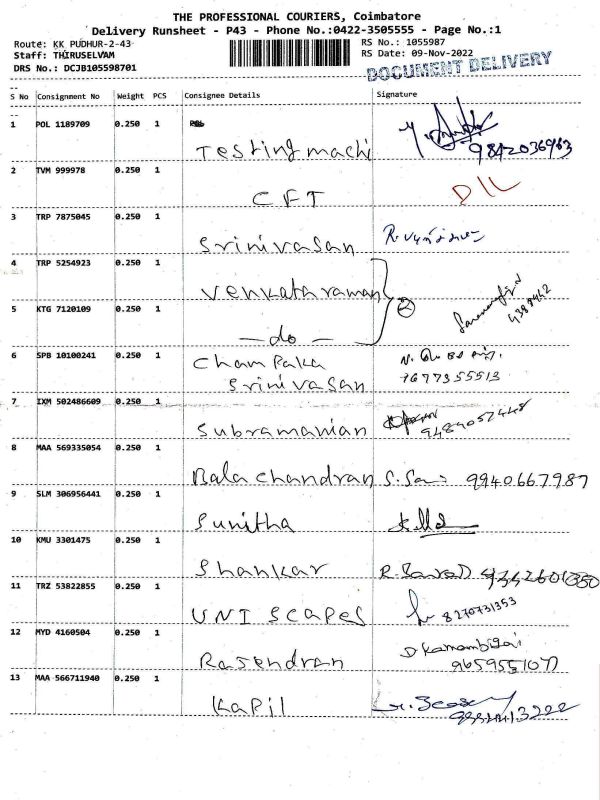 THE PROFESSIONAL COURIERS, Coimbatore
Delivery Runsheet - P43 - Phone No.:0422-3505555 - Page No.:1
Route: KK PUDHUR-2-43
RS No.: 1055987
Staff: THIRUSELVAM
RS Date: 09-Nov-2022
DRS No.: DCJB105598701
DOCUMENT DELIVERY
S No Consignment No Weight PCS Consignee Details Signature
1 POL 1189709 0.250 1
Testing machi 9842036963
2 TVM 999978 0.250 1
CFT
3 TRP 7875045 0.250 1
Srinivasan
4 TRP 5254923 0.250 1
Venkataraman
2
5 KTG 7120109 0.250 1
4388442
- do -
6 SPB 10100241 0.250 1
Champaka
Srinivasan 7677355513
7 IXM 502486609 0.250 1
Subramanian
8 MAA 569335054 0.250 1
Balachandran 9940667987
9 SLM 306956441 0.250 1
Sunitha
10 KMU 3301475 0.250 1
Shankar
11 TRZ 53822855 0.250 1
UNI SCAPES 8270731353
12 MYD 4160504 0.250 1
Rajendran
13 MAA 566711940 0.250 1
Kapil